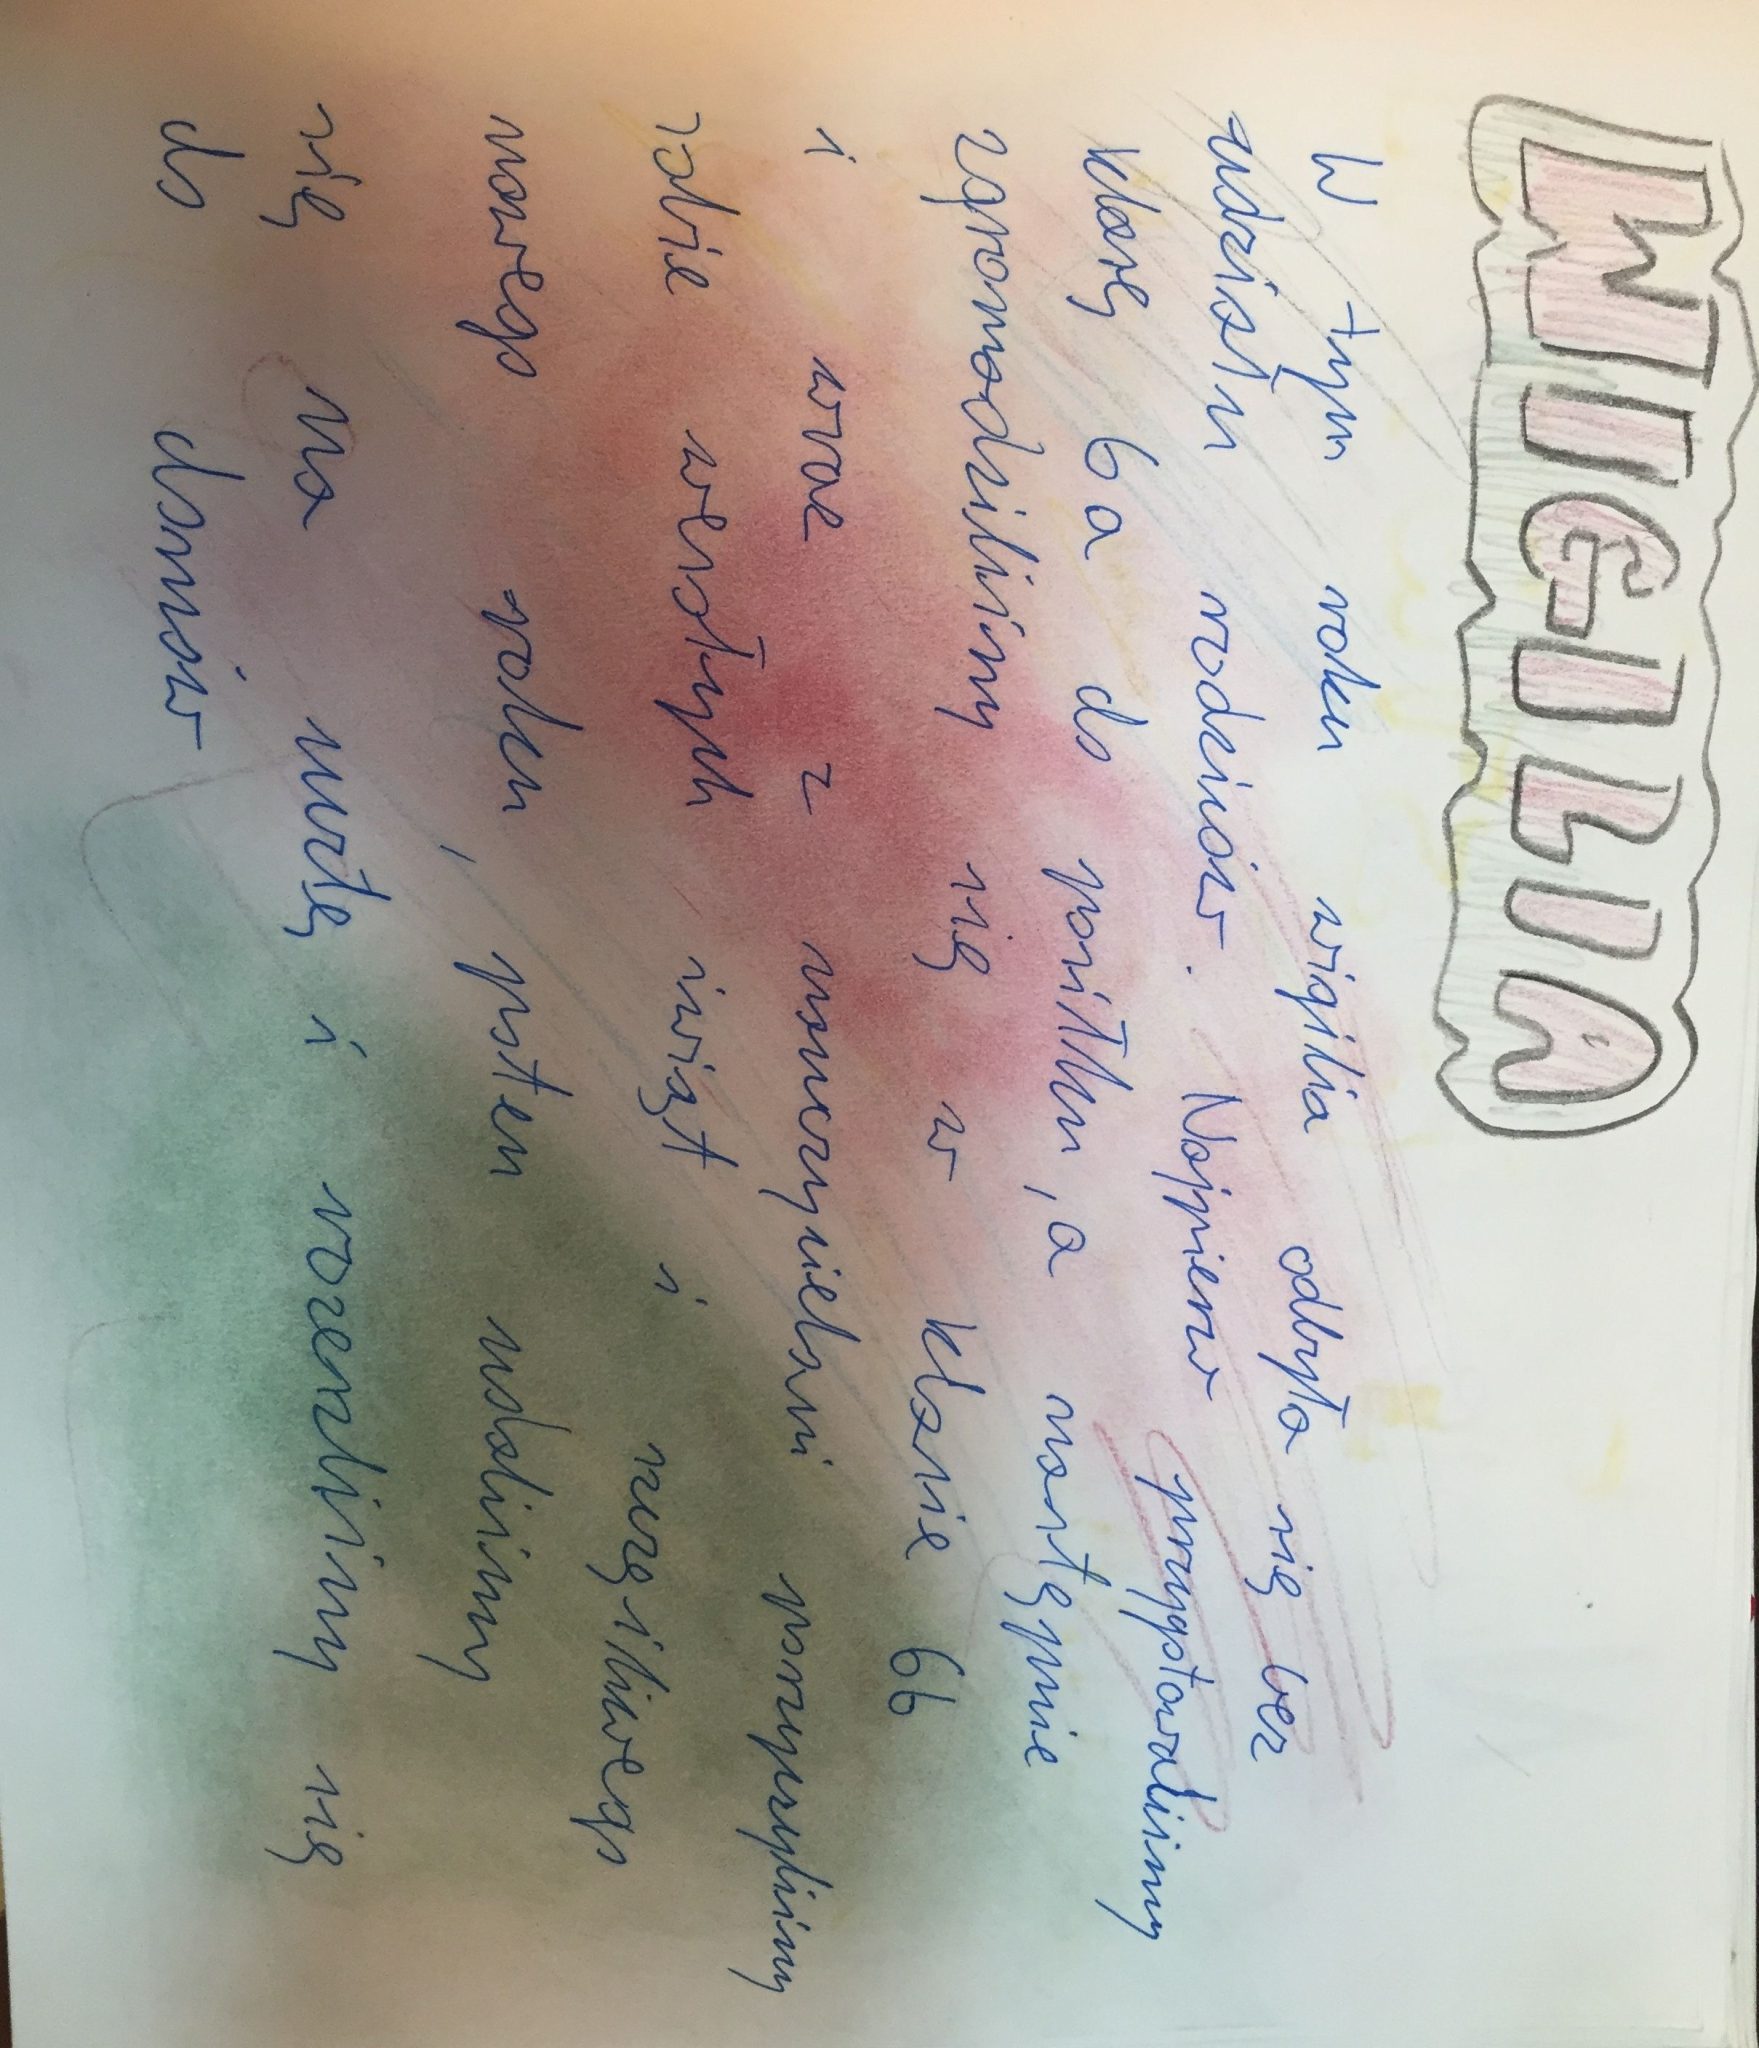 WIGILIA
W tym roku wigilia odbyła się bez
udziału rodziców. Najpierw przygotowaliśmy
klasę 6a do posiłku, a następnie
zgromadziliśmy się w klasie 6b
i wraz z nauczycielami poszyszyliśmy
sobie wesołych świąt i szczęśliwego
nowego roku, potem udaliśmy
się na mszę i rozeszliśmy się
do domów